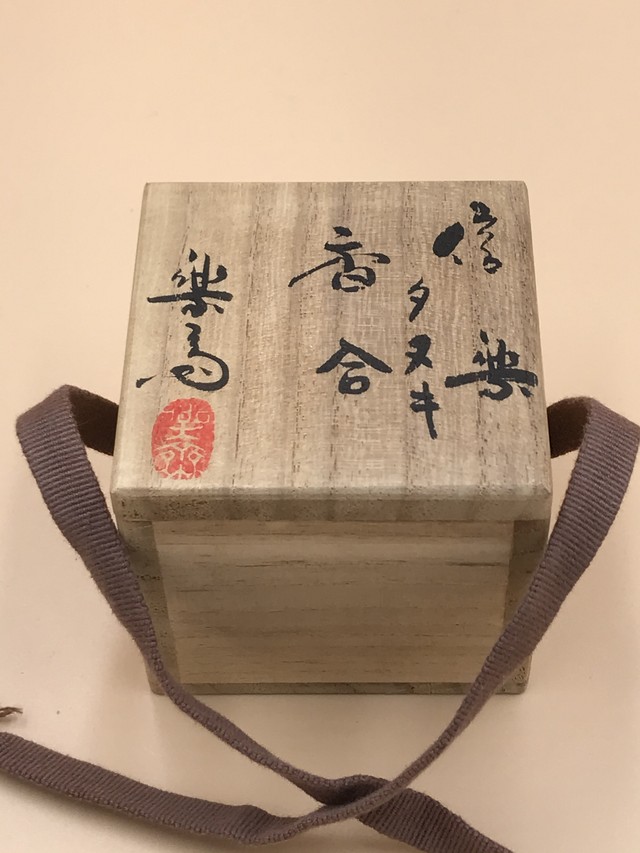 信楽
タヌキ
香合
楽